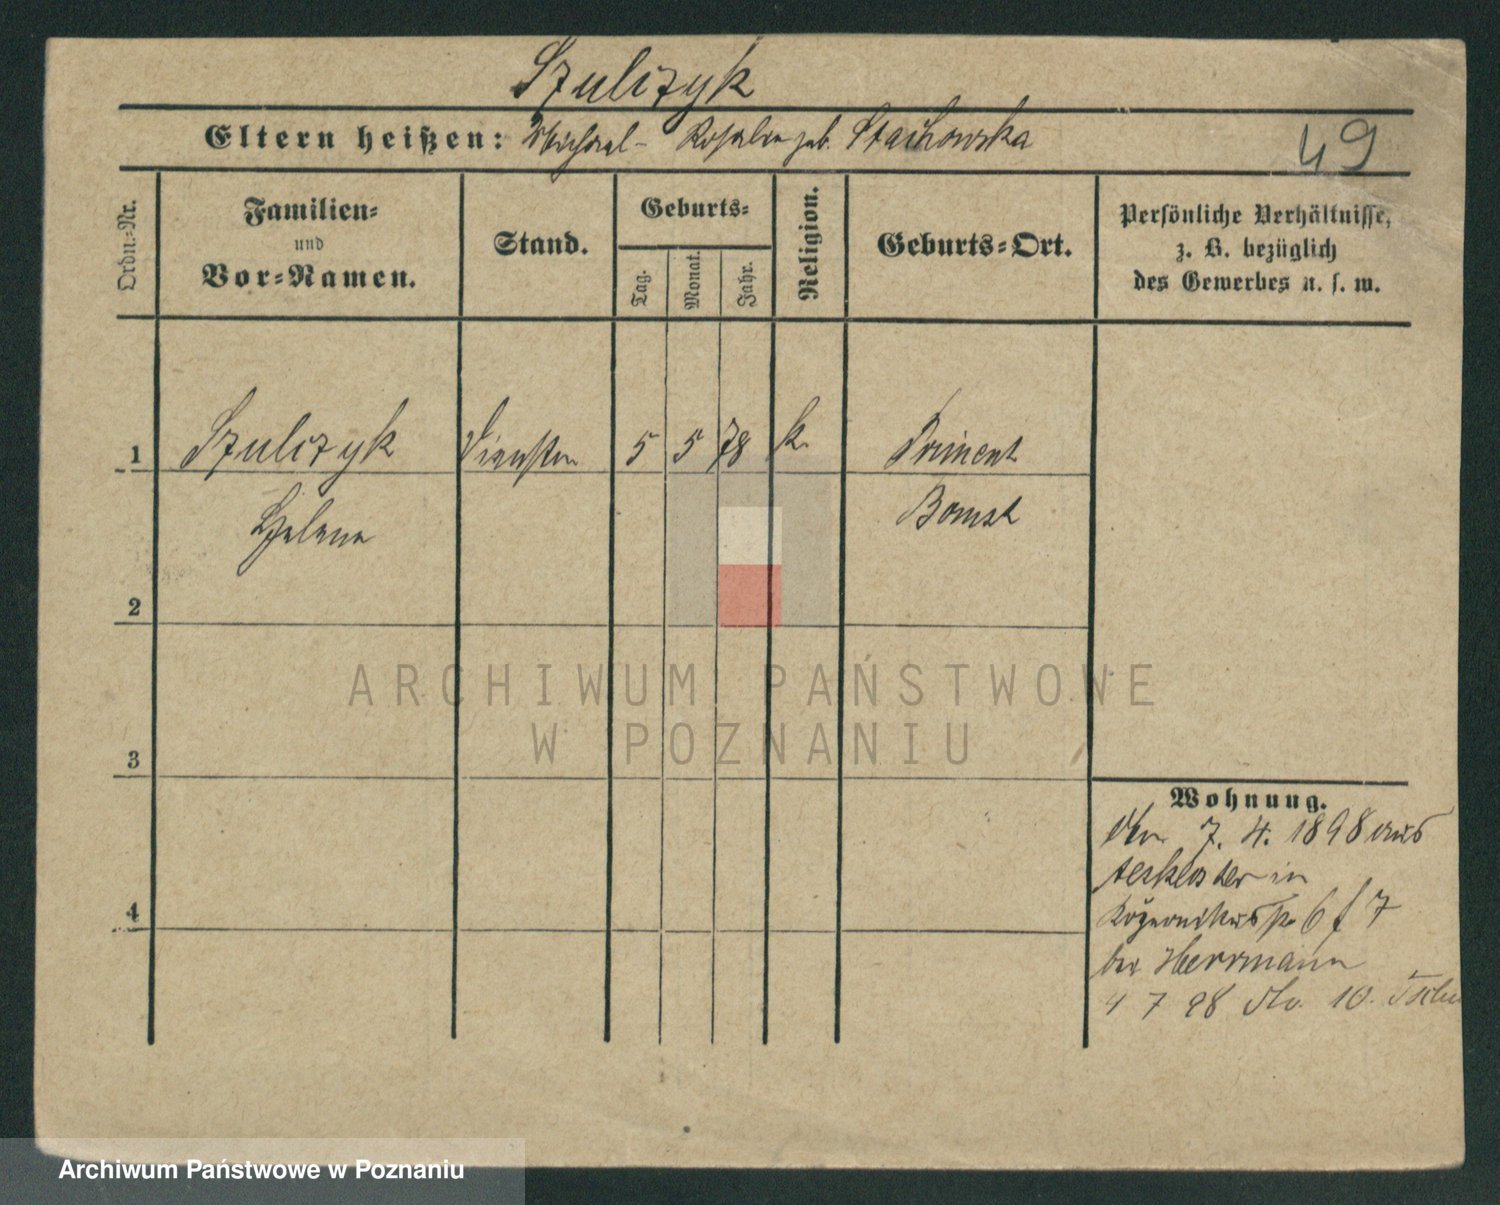 Szulczyk
Eltern heißen: Michael - Rosalia geb. Stachowska
49
Ordn.-Nr.
Familien-
und
Vor-Namen.
Stand.
Geburts-
Tag.
Monat.
Jahr.
Religion.
Geburts-Ort.
Persönliche Verhältnisse,
z. B. bezüglich
des Gewerbes u. s. w.
1 Szulczyk 5 5 78 k. Priment
Helena Bomst
2
3
4
ARCHIWUM PAŃSTWOWE
W POZNANIU
Wohnung.
7. 4. 1898 aus
in
6 f 7
bei Herrmann
4 7 98 10.
Archiwum Państwowe w Poznaniu